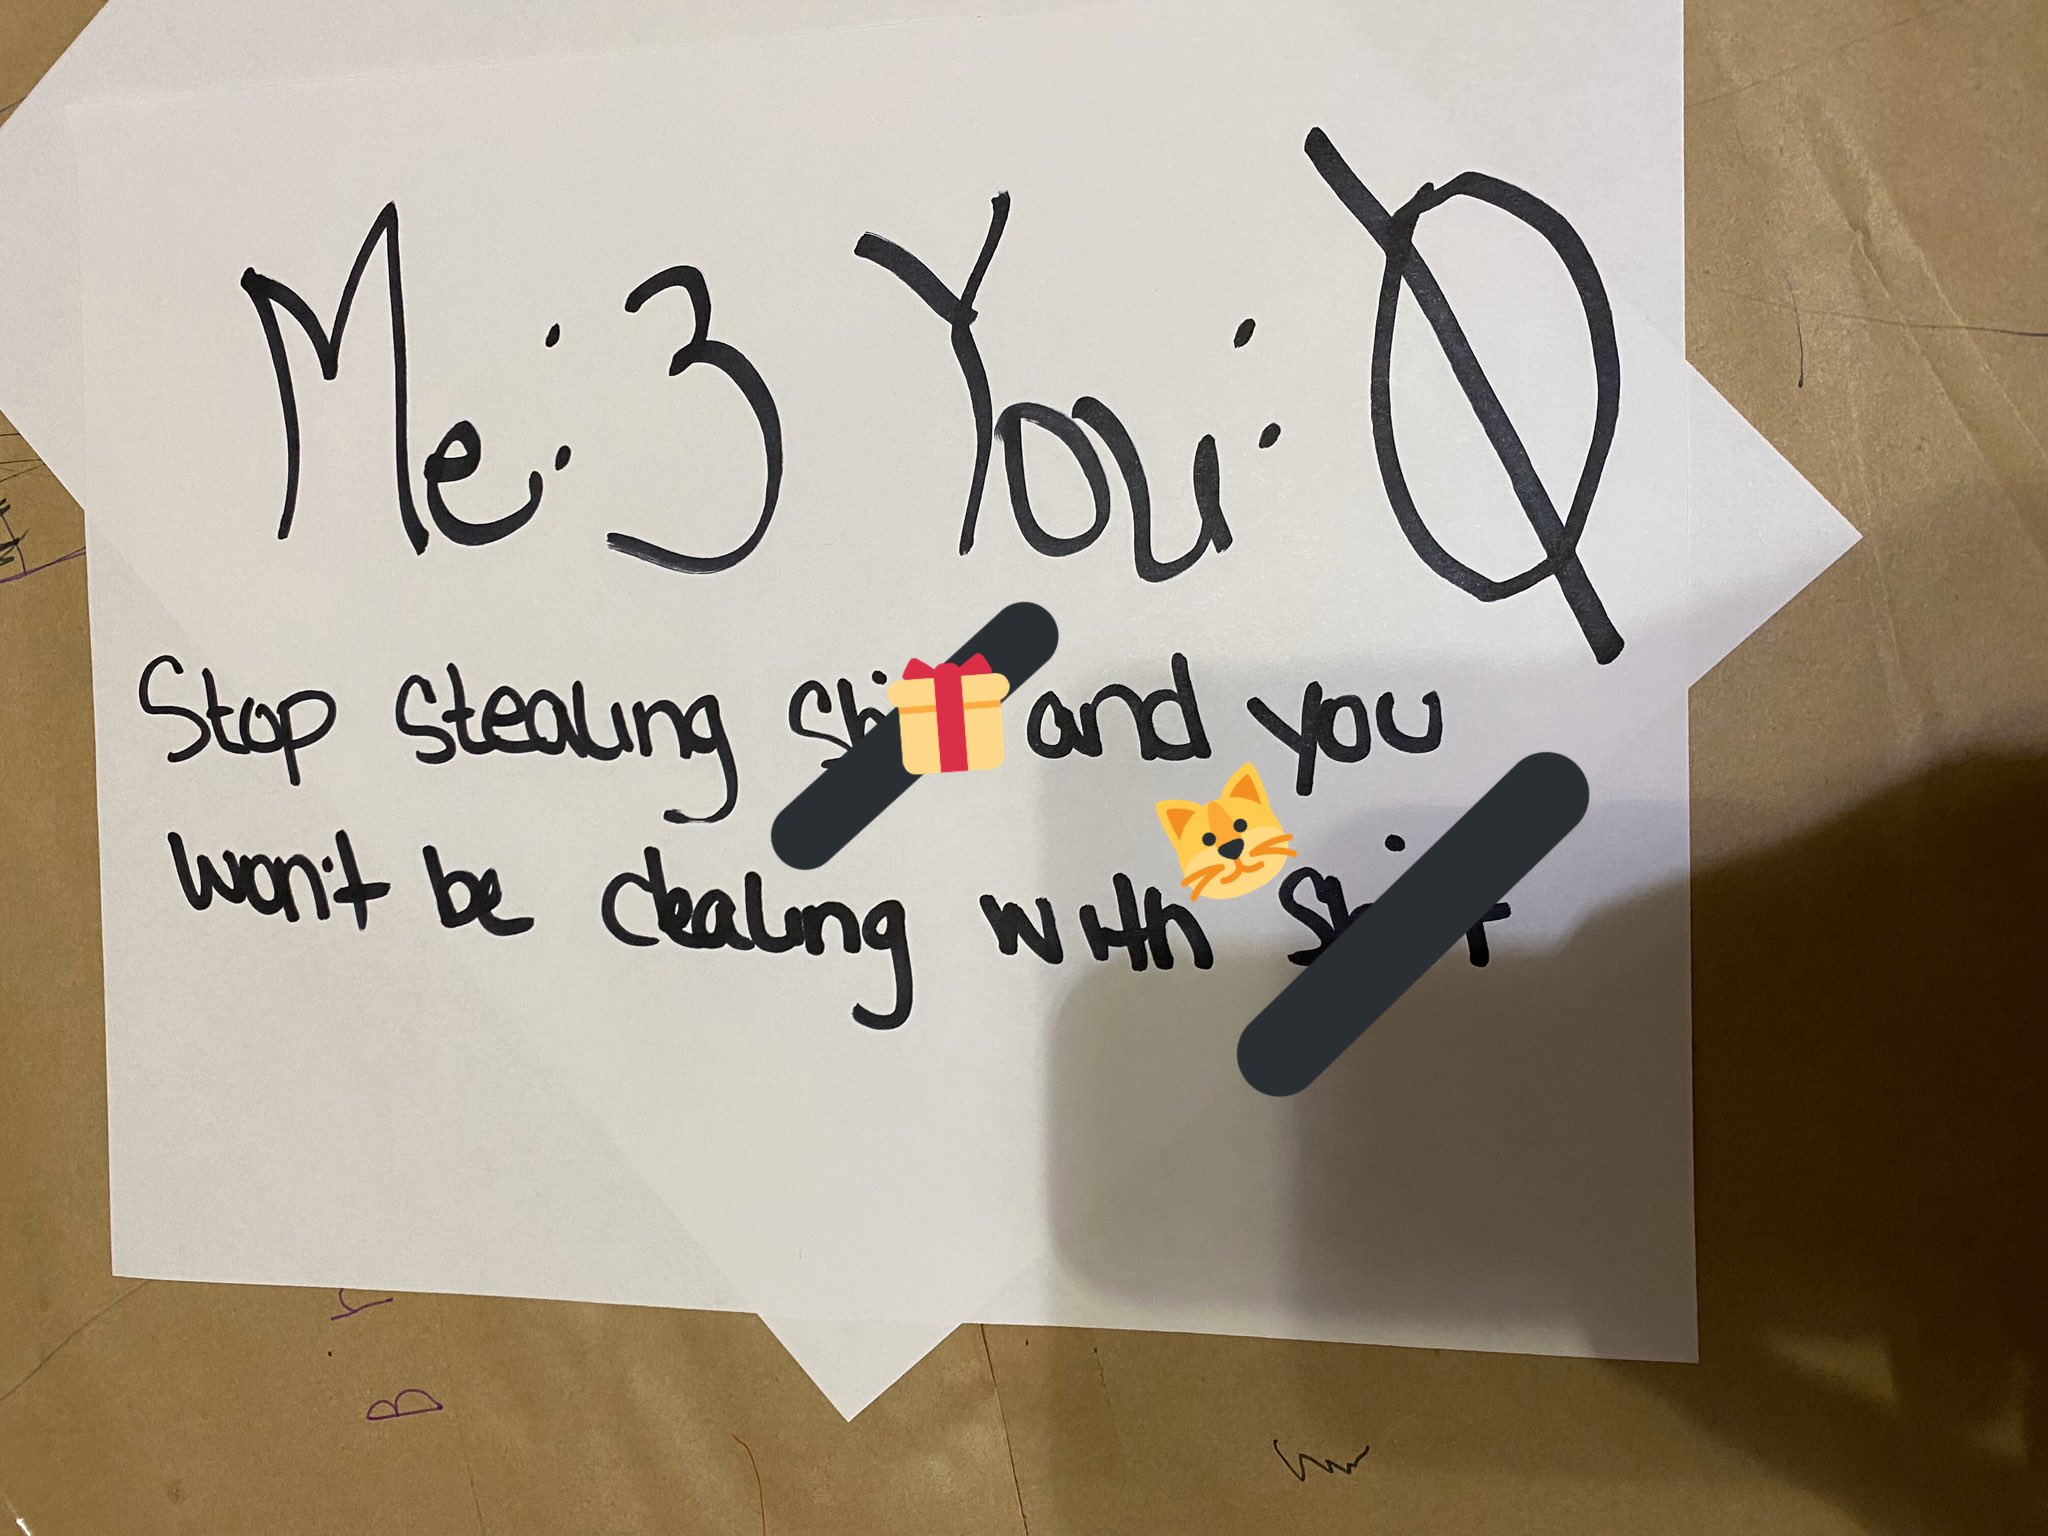 Me: 3 You: 0
Stop stealing and you
won't be dealing with
B r